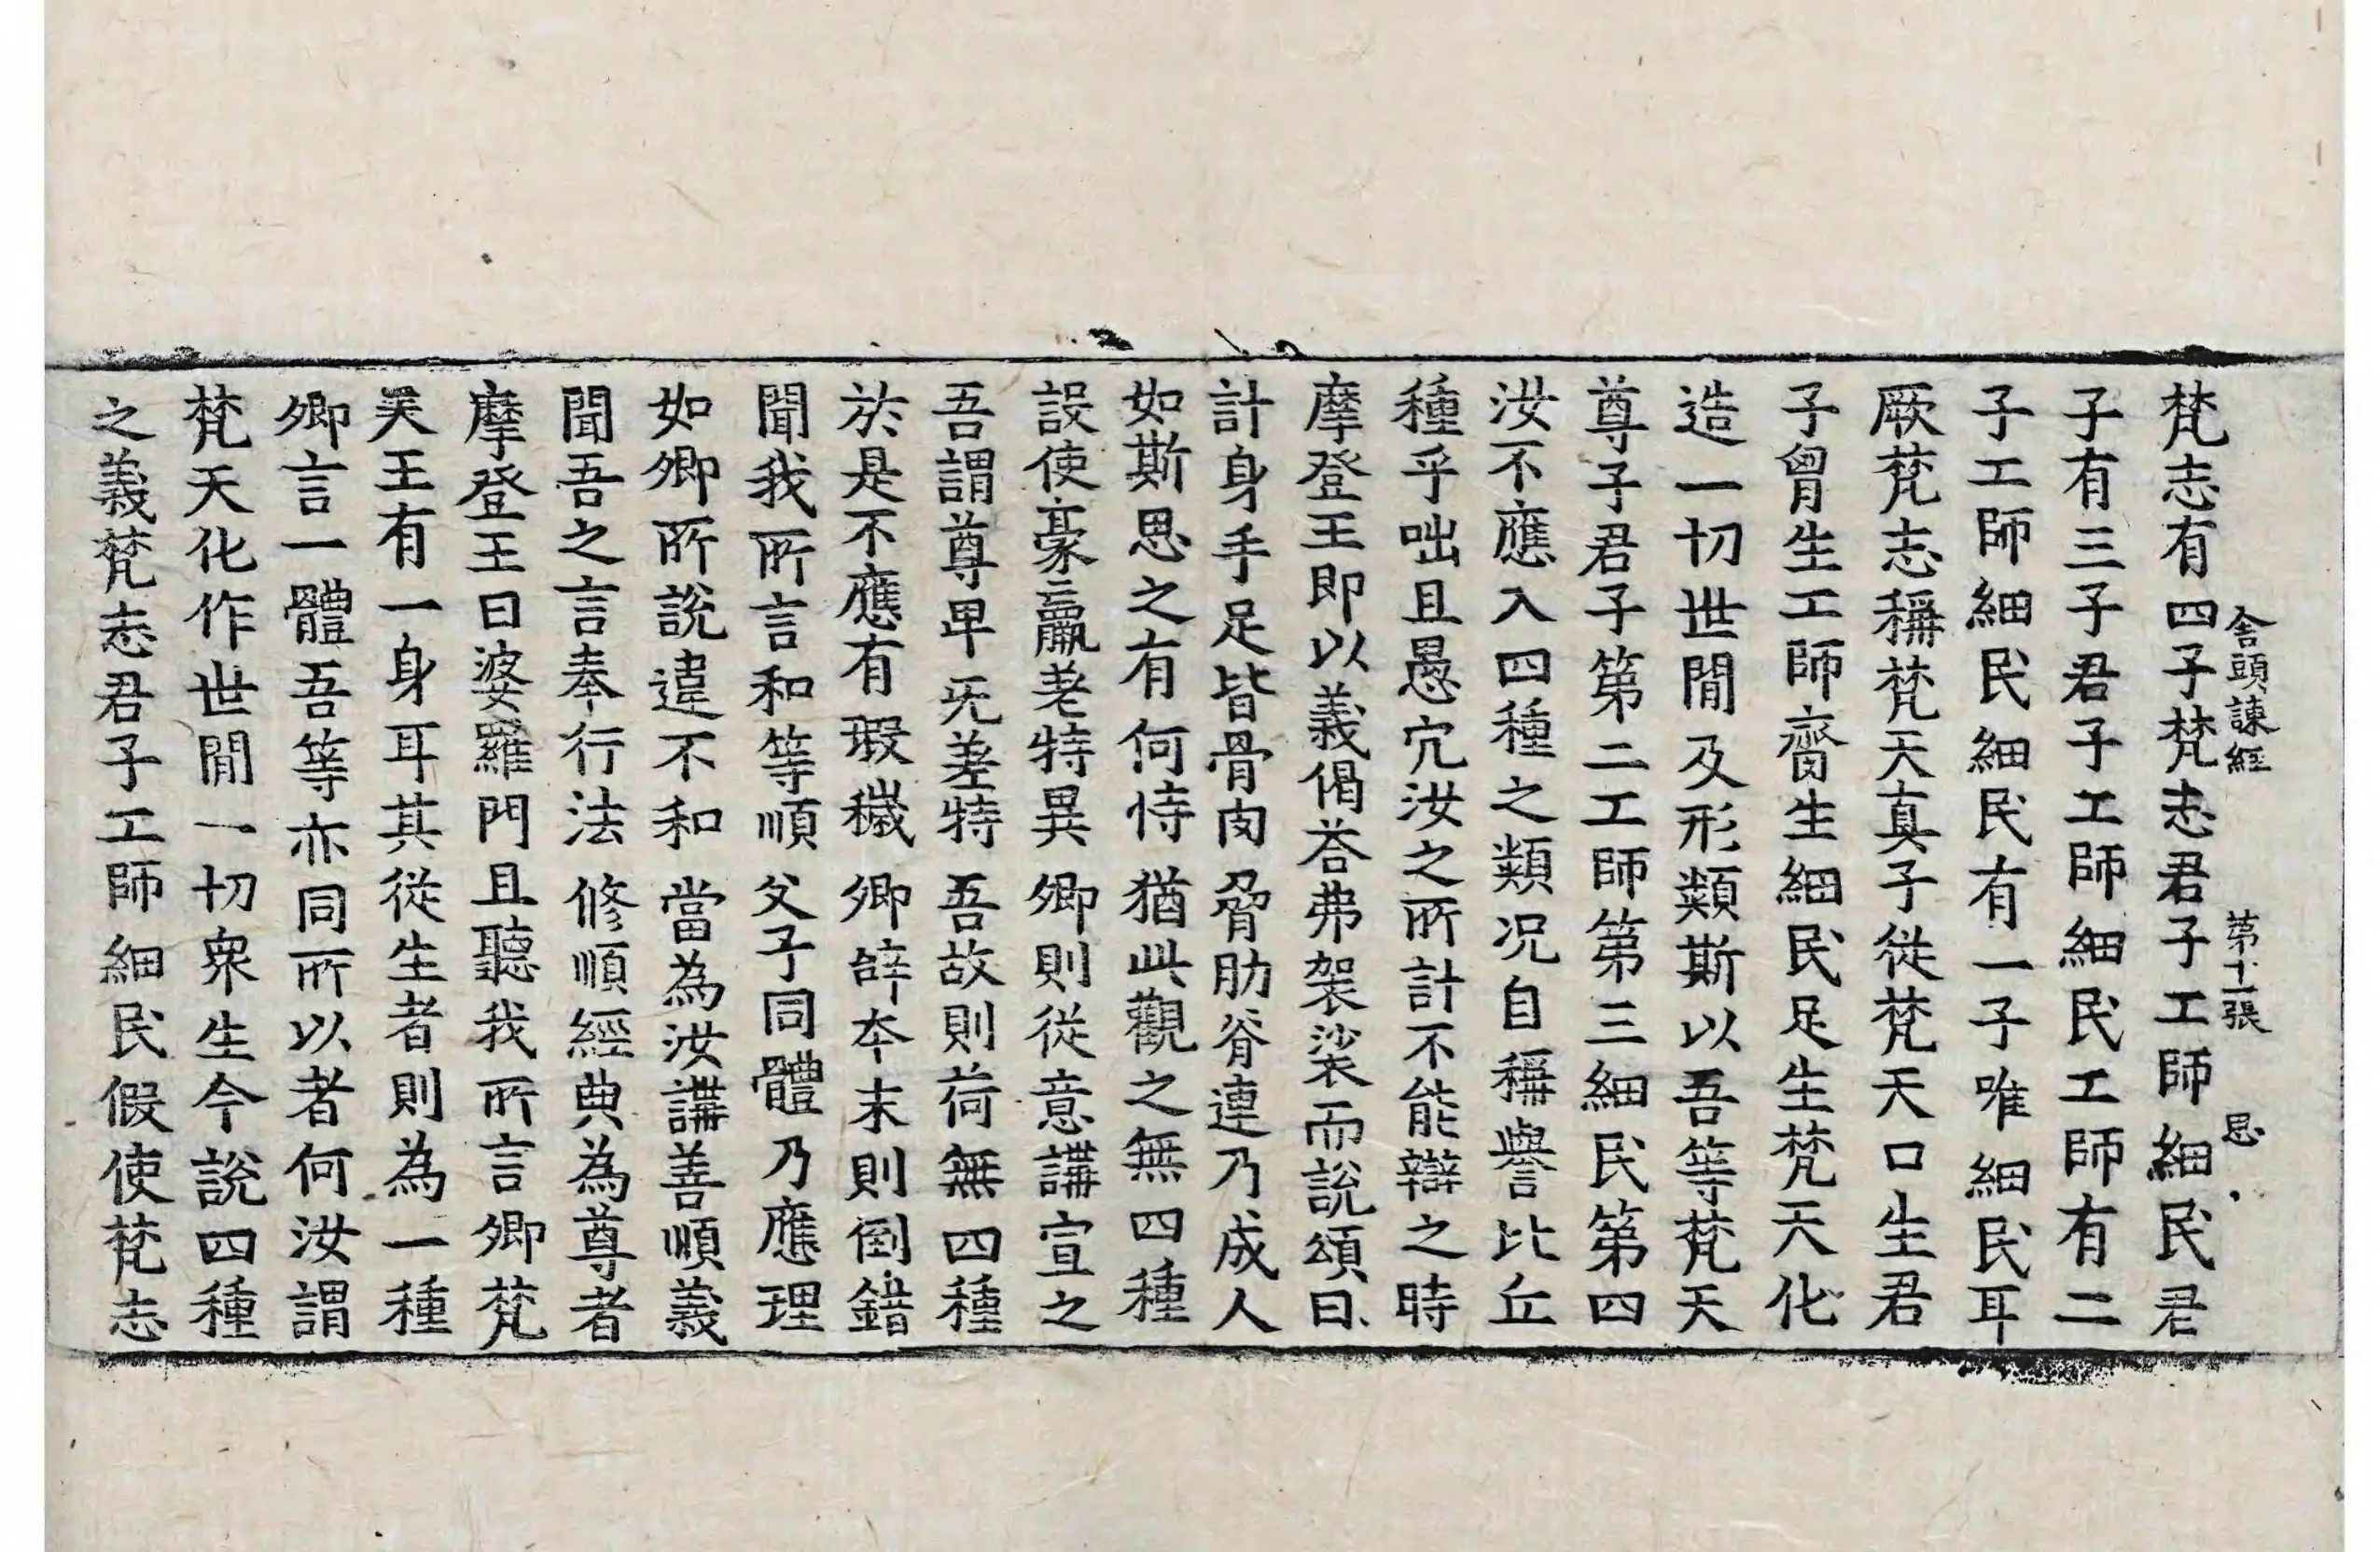 舍頭諫經 第十一張 思
梵志有四子梵志君子工師細民君
子有三子君子工師細民工師有二
子工師細民細民有一子唯細民耳
厥梵志稱梵天真子從梵天口生君
子曾生工師齊生細民足生梵天化
造一切世閒及形類斯以吾等梵天
尊子君子第二工師第三細民第四
汝不應入四種之類况自稱譽比丘
種乎咄且愚宂汝之所計不能辯之時
摩登王即以義偈荅弗袈裟而說頌曰
計身手足皆骨肉 脅肋脊連乃成人
如斯思之有何恃 猶此觀之無四種
設使豪羸老特異 卿則從意講宣之
吾謂尊卑旡差特 吾故則荷無四種
於是不應有瑕穢 卿辝夲末則倒錯
聞我所言和等順 父子同體乃應理
如卿所說違不和 當為汝講善順義
聞吾之言奉行法 修順經典為尊者
摩登王曰婆羅門且聽我所言卿梵
天王有一身耳其從生者則為一種
卿言一體吾等亦同所以者何汝謂
梵天化作世閒一切衆生今說四種
之義梵志君子工師細民假使梵志